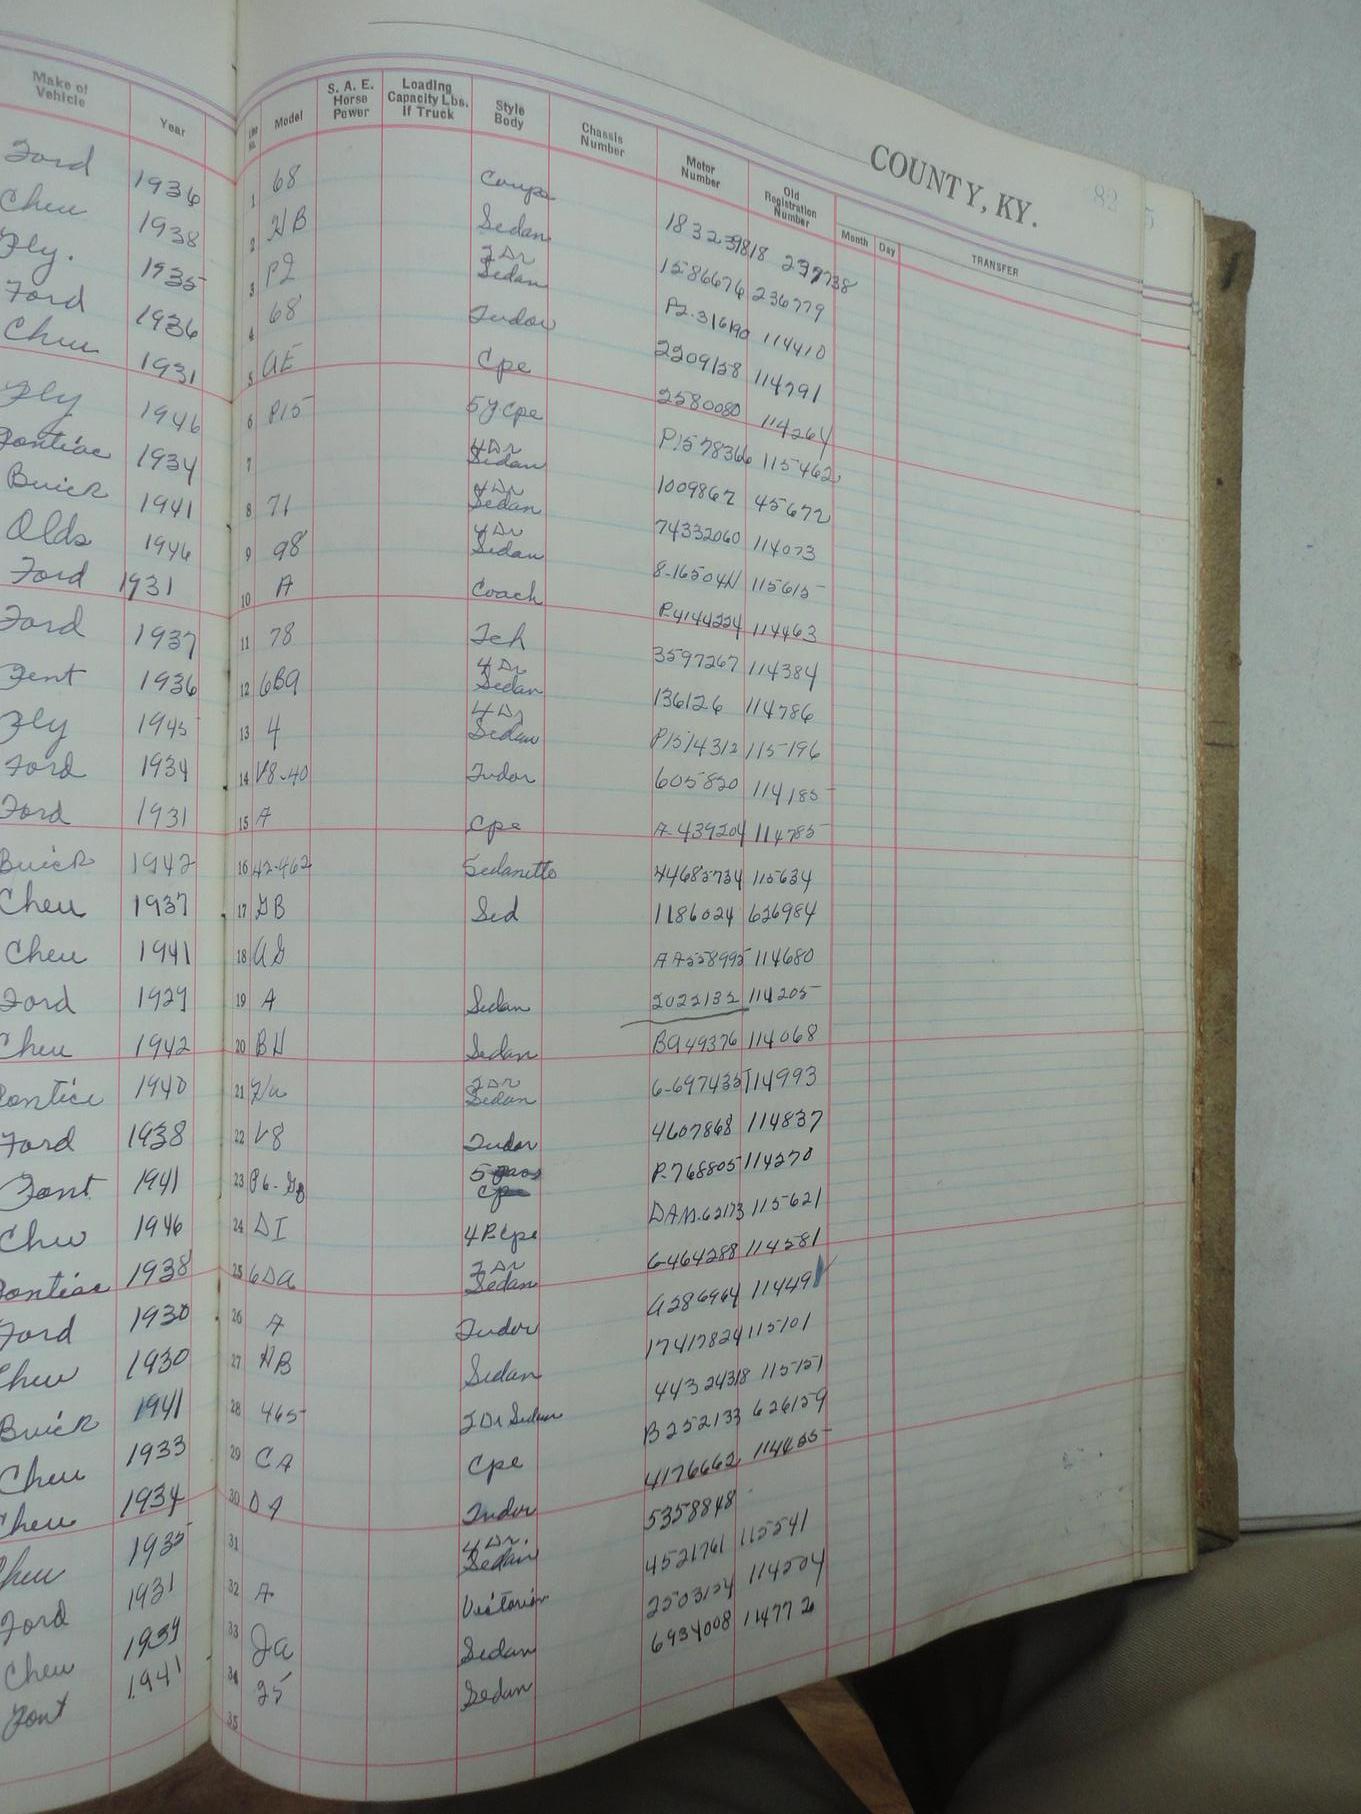 COUNTY, KY.
82
Make of Vehicle Year Line No. Model S. A. E. Horse Power Loading Capacity Lbs. if Truck Style Body Chassis Number Motor Number Old Registration Number Month Day TRANSFER
Ford 1936 1 68 Coupe
Chev 1938 2 HB Sedan 1586676 236779
Ply. 1935 3 PJ 2 Dr Sedan 114410
Ford 1936 4 68 Tudor 2209158 114791
Chev 1931 5 AE Cpe 2580080 114264
Ply 1946 6 P15 Cpe P1578366 115462
Pontiac 1934 7 4 Dr Sedan 1009867 45672
Buick 1941 8 71 4 Dr Sedan 74332060 114073
Olds 1946 9 98 4 Dr Sedan 115615
Ford 1931 10 A Coach 114463
Ford 1937 11 78 3597267 114384
1936 12 6B9 4 Dr Sedan 136126 114786
Ply 1945 13 4 4 Dr Sedan P1514312 115196
Ford 1934 14 V8-40 Tudor 605820 114185
Ford 1931 15 A Cpe A-439204 114785
Buick 1942 16 Sedanette 115634
Chev 1937 17 GB Sed 1186024 626984
Chev 1941 18 AG AA558995 114680
Ford 1929 19 A Sedan 2022132 114205
Chev 1942 20 BH Sedan BA49376 114068
1940 21 2 Dr Sedan 6-697435 114993
Ford 1938 22 V8 Tudor 4607868 114837
Pont 1941 23 5 P-768805 114270
Chev 1946 24 DI 4 P. Cpe DAM-62173 115621
Pontiac 1938 25 6DA 2 Dr Sedan 6-464288 114581
Ford 1930 26 A Tudor A286964 114491
Chev 1930 27 HB Sedan 17417824 115101
Buick 1941 28 465 2 Dr Sedan 44324318 115151
Chev 1933 29 CA Cpe B252133 626159
Chev 1934 30 DA Tudor 4176662
Chev 1935 31 4 Dr. Sedan 5358848
Ford 1931 32 A Victoria 4521761 115541
Chev 1939 33 Ja Sedan 2503154 114504
Pont 1941 34 25 Sedan 6934008 114772
35